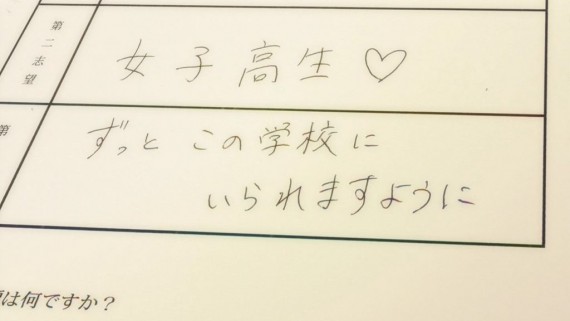 第二志望
女子高生♡
第
ずっと この学校に
いられますように
は何ですか？